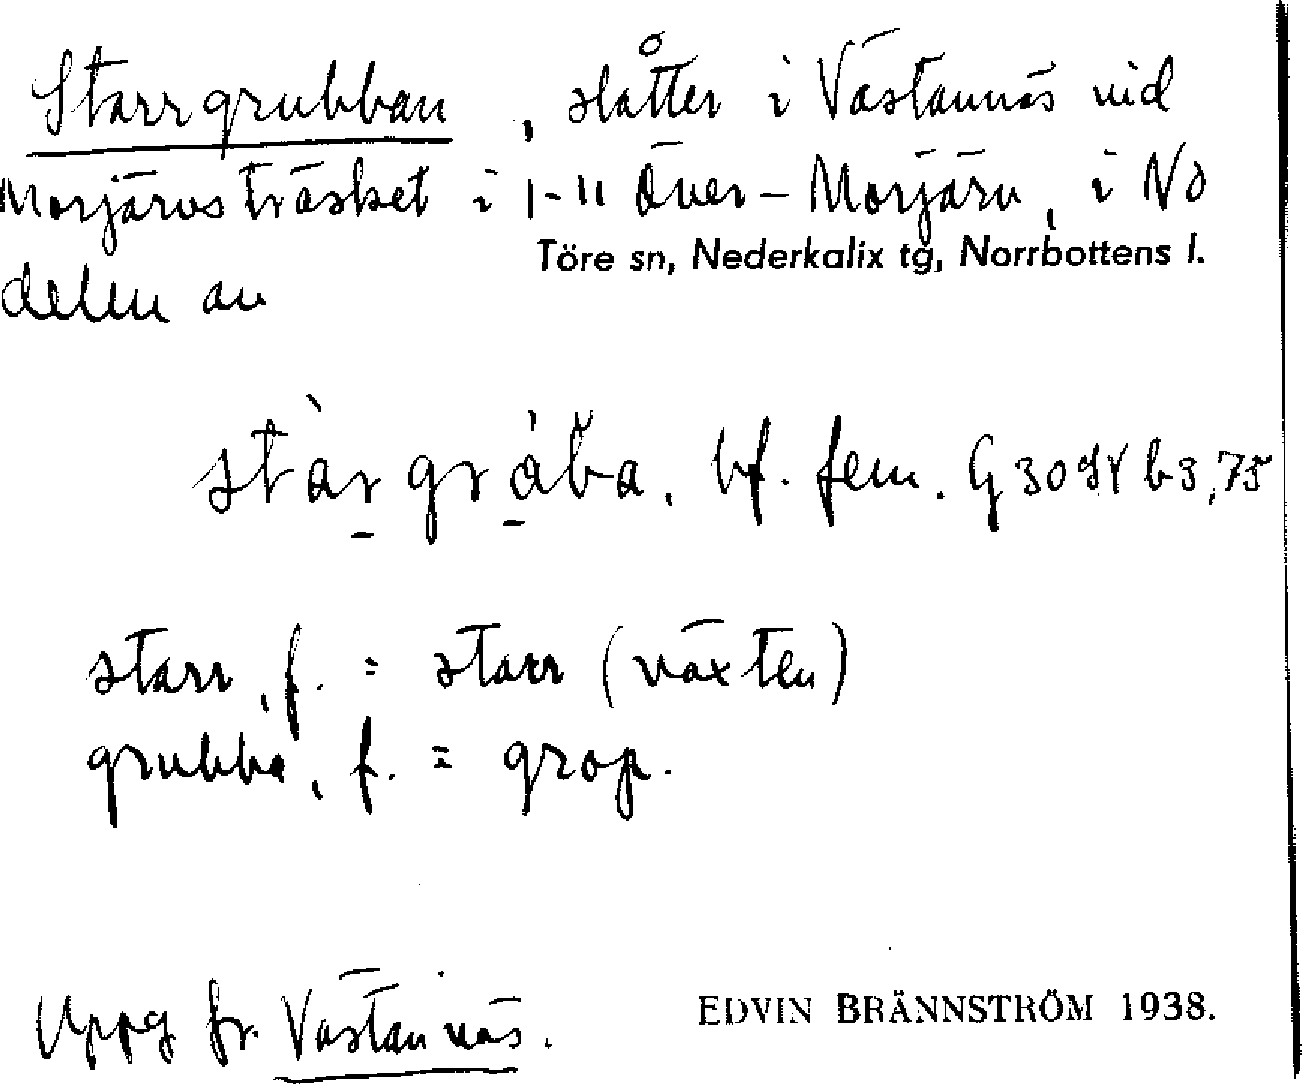 Starrgrubban, slåtter i Västannäs vid
Morjärvsträsket i 1-11 Över-Morjärv, i NO
Töre sn, Nederkalix tg, Norrbottens l.
delen av
stàrgràb̆a. bf. fem. G 30
starr, f. = starr (växten)
grubba, f. = grop.
Uppg fr. Västannäs.
EDVIN BRÄNNSTRÖM 1938.